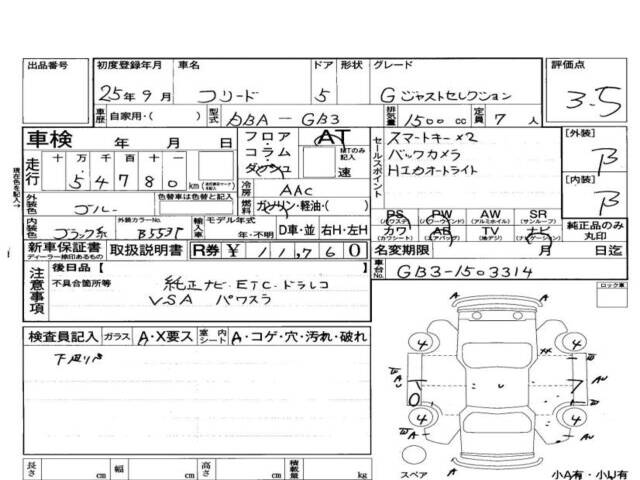 出品番号 初度登録年月 車名 ドア 形状 グレード 評価点
25年9月 フリード 5 Gジャストセレクション 3.5
車歴 自家用・( ) 型式 DBA-GB3 排気量 1500cc 定員 7人
車検 年 月 日
フロア・コラム・ダッシュ AT MTのみ記入 速
セールスポイント
スマートキー×2
バックカメラ
HIDオートライト
[外装] B
[内装] B
現在色を記入→
走行 十万千百十 54780 km
冷房 AAC
燃料 ガソリン・軽油・( )
外装色 ブルー 色替車は色替と記入
内装色 ブラック系 外装カラーNo. B553P
輸入車 モデル年式 年・不明 D車・並 右H・左H
PS (パワステ) PW (パワーウインド) AW (アルミホイル) SR (サンルーフ)
カワ (カワシート) AB (エアバッグ) TV (地デジ) ナビ (ナビゲーション)
純正品のみ丸印
新車保証書 ディーラー検印あるもの 取扱説明書 R券 ¥11,760
名変期限 月 日迄
車台No. GB3-1503314
注意事項
後日品【 】
不具合箇所等 純正ナビ・ETC・ドラレコ
VSA パワスラ
ロック車
検査員記入 ガラス A・X要ス 室内シート A・コゲ・穴・汚れ・破れ
A
4 4
4 4
スペア
A
小A有・小U有
長さ cm 幅 cm 高さ cm 積載量 kg